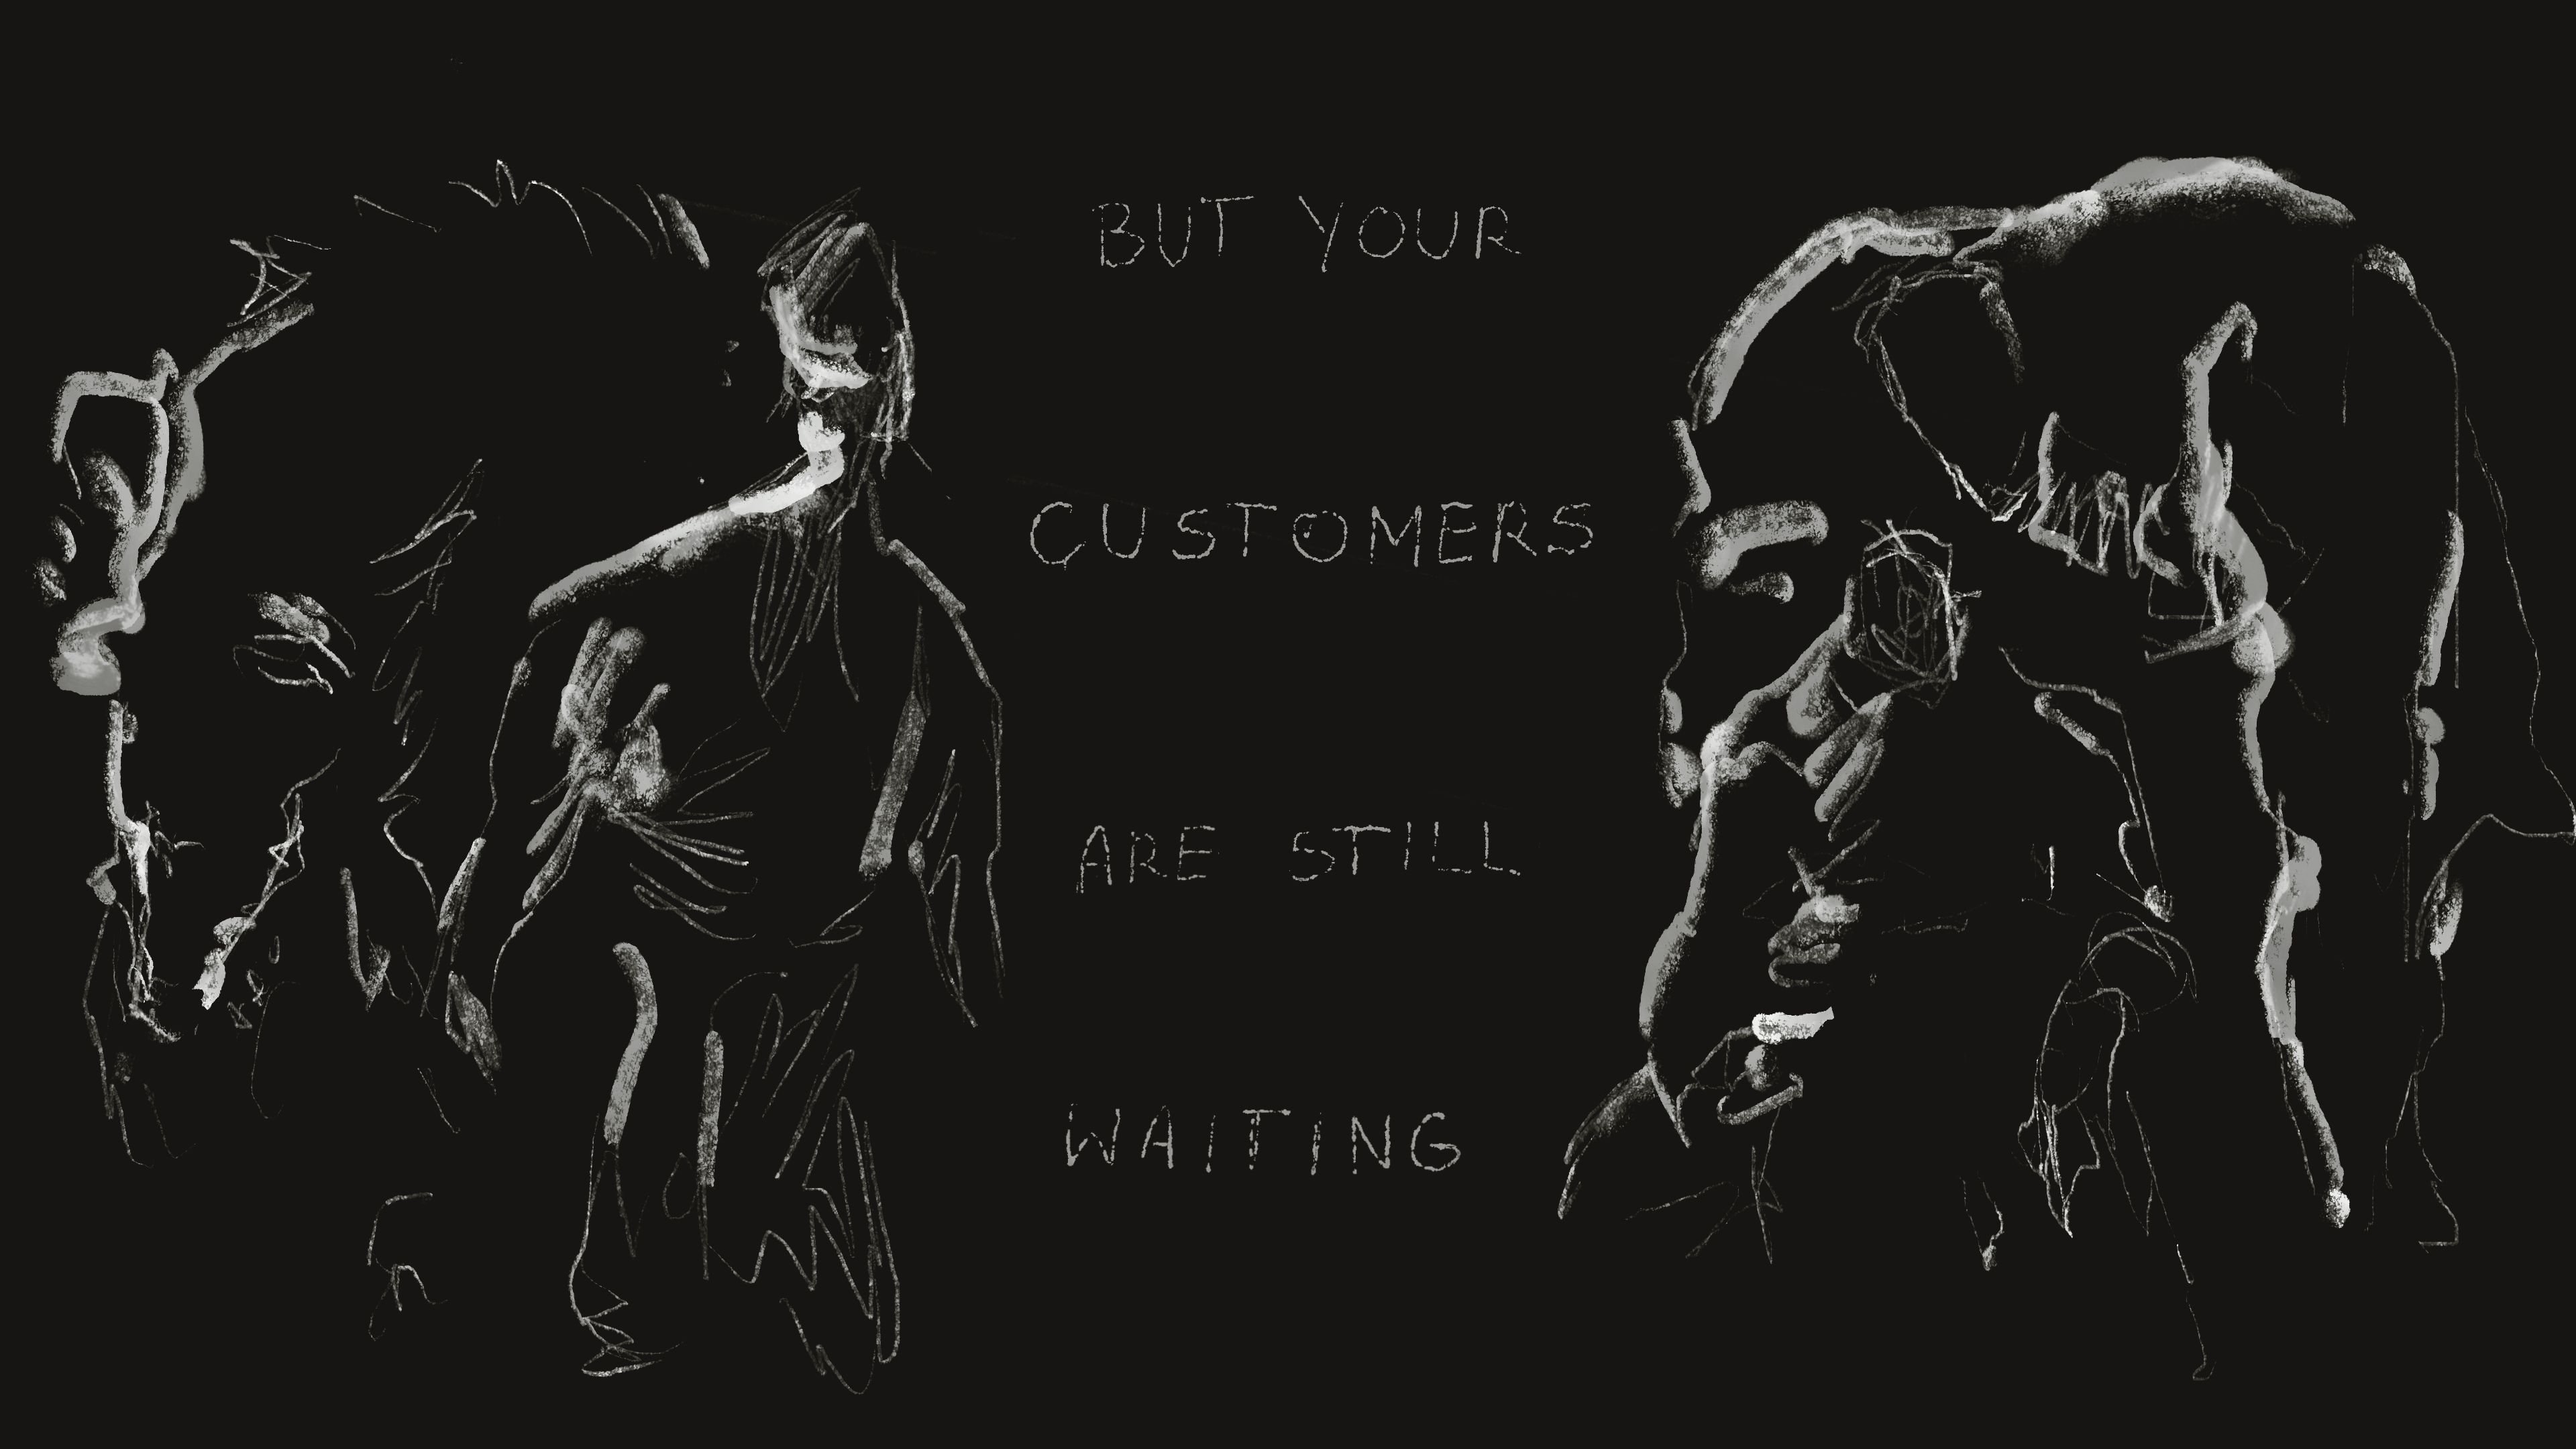 BUT YOUR
CUSTOMERS
ARE STILL
WAITING